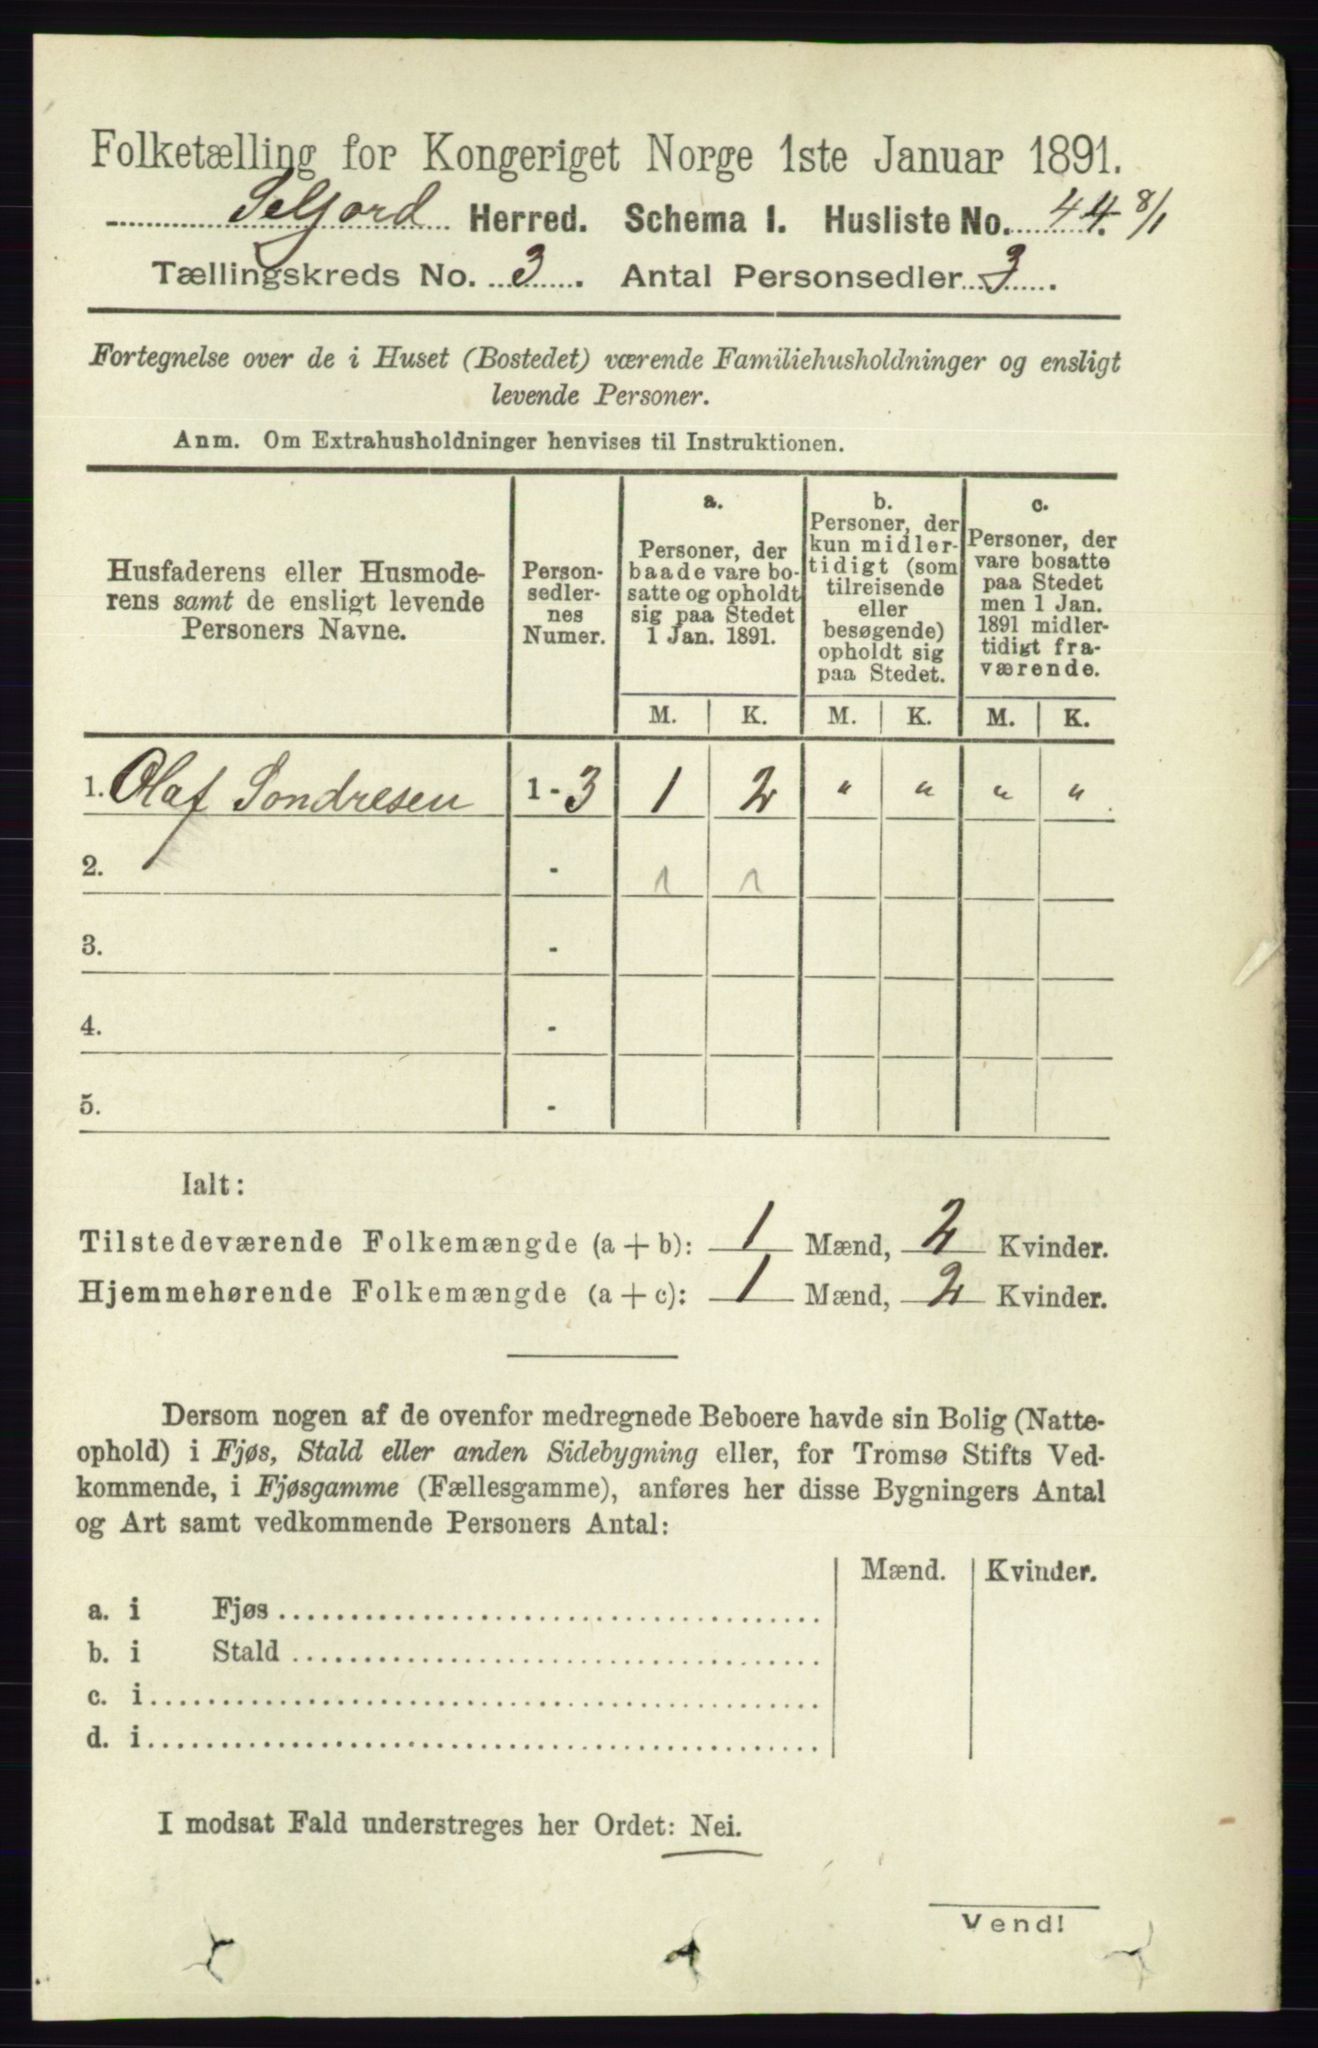 Folketælling for Kongeriget Norge 1ste Januar 1891.
Seljord Herred. Schema 1. Husliste No. 44. 8/1
Tællingskreds No. 3. Antal Personsedler 3.
Fortegnelse over de i Huset (Bostedet) værende Familiehusholdninger og ensligt
levende Personer.
Anm. Om Extrahusholdninger henvises til Instruktionen.
Husfaderens eller Husmode-
rens samt de ensligt levende
Personers Navne.
Person-
sedler-
nes
Numer.
a.
Personer, der
baade vare bo-
satte og opholdt
sig paa Stedet
1 Jan. 1891.
b.
Personer, der
kun midler-
tidigt (som
tilreisende
eller
besøgende)
opholdt sig
paa Stedet.
c.
Personer, der
vare bosatte
paa Stedet
men 1 Jan.
1891 midler-
tidigt fra-
værende.
M. K. M. K. M. K.
1. Olaf Sondresen 1 - 3 1 2 " " " "
2. - 1 1
3. -
4. -
5. -
Ialt:
Tilstedeværende Folkemængde (a + b): 1 Mænd, 2 Kvinder.
Hjemmehørende Folkemængde (a + c): 1 Mænd, 2 Kvinder.
Dersom nogen af de ovenfor medregnede Beboere havde sin Bolig (Natte-
ophold) i Fjøs, Stald eller anden Sidebygning eller, for Tromsø Stifts Ved-
kommende, i Fjøsgamme (Fællesgamme), anføres her disse Bygningers Antal
og Art samt vedkommende Personers Antal:
Mænd. Kvinder.
a. i Fjøs
b. i Stald
c. i
d. i
I modsat Fald understreges her Ordet: Nei.
Vend!